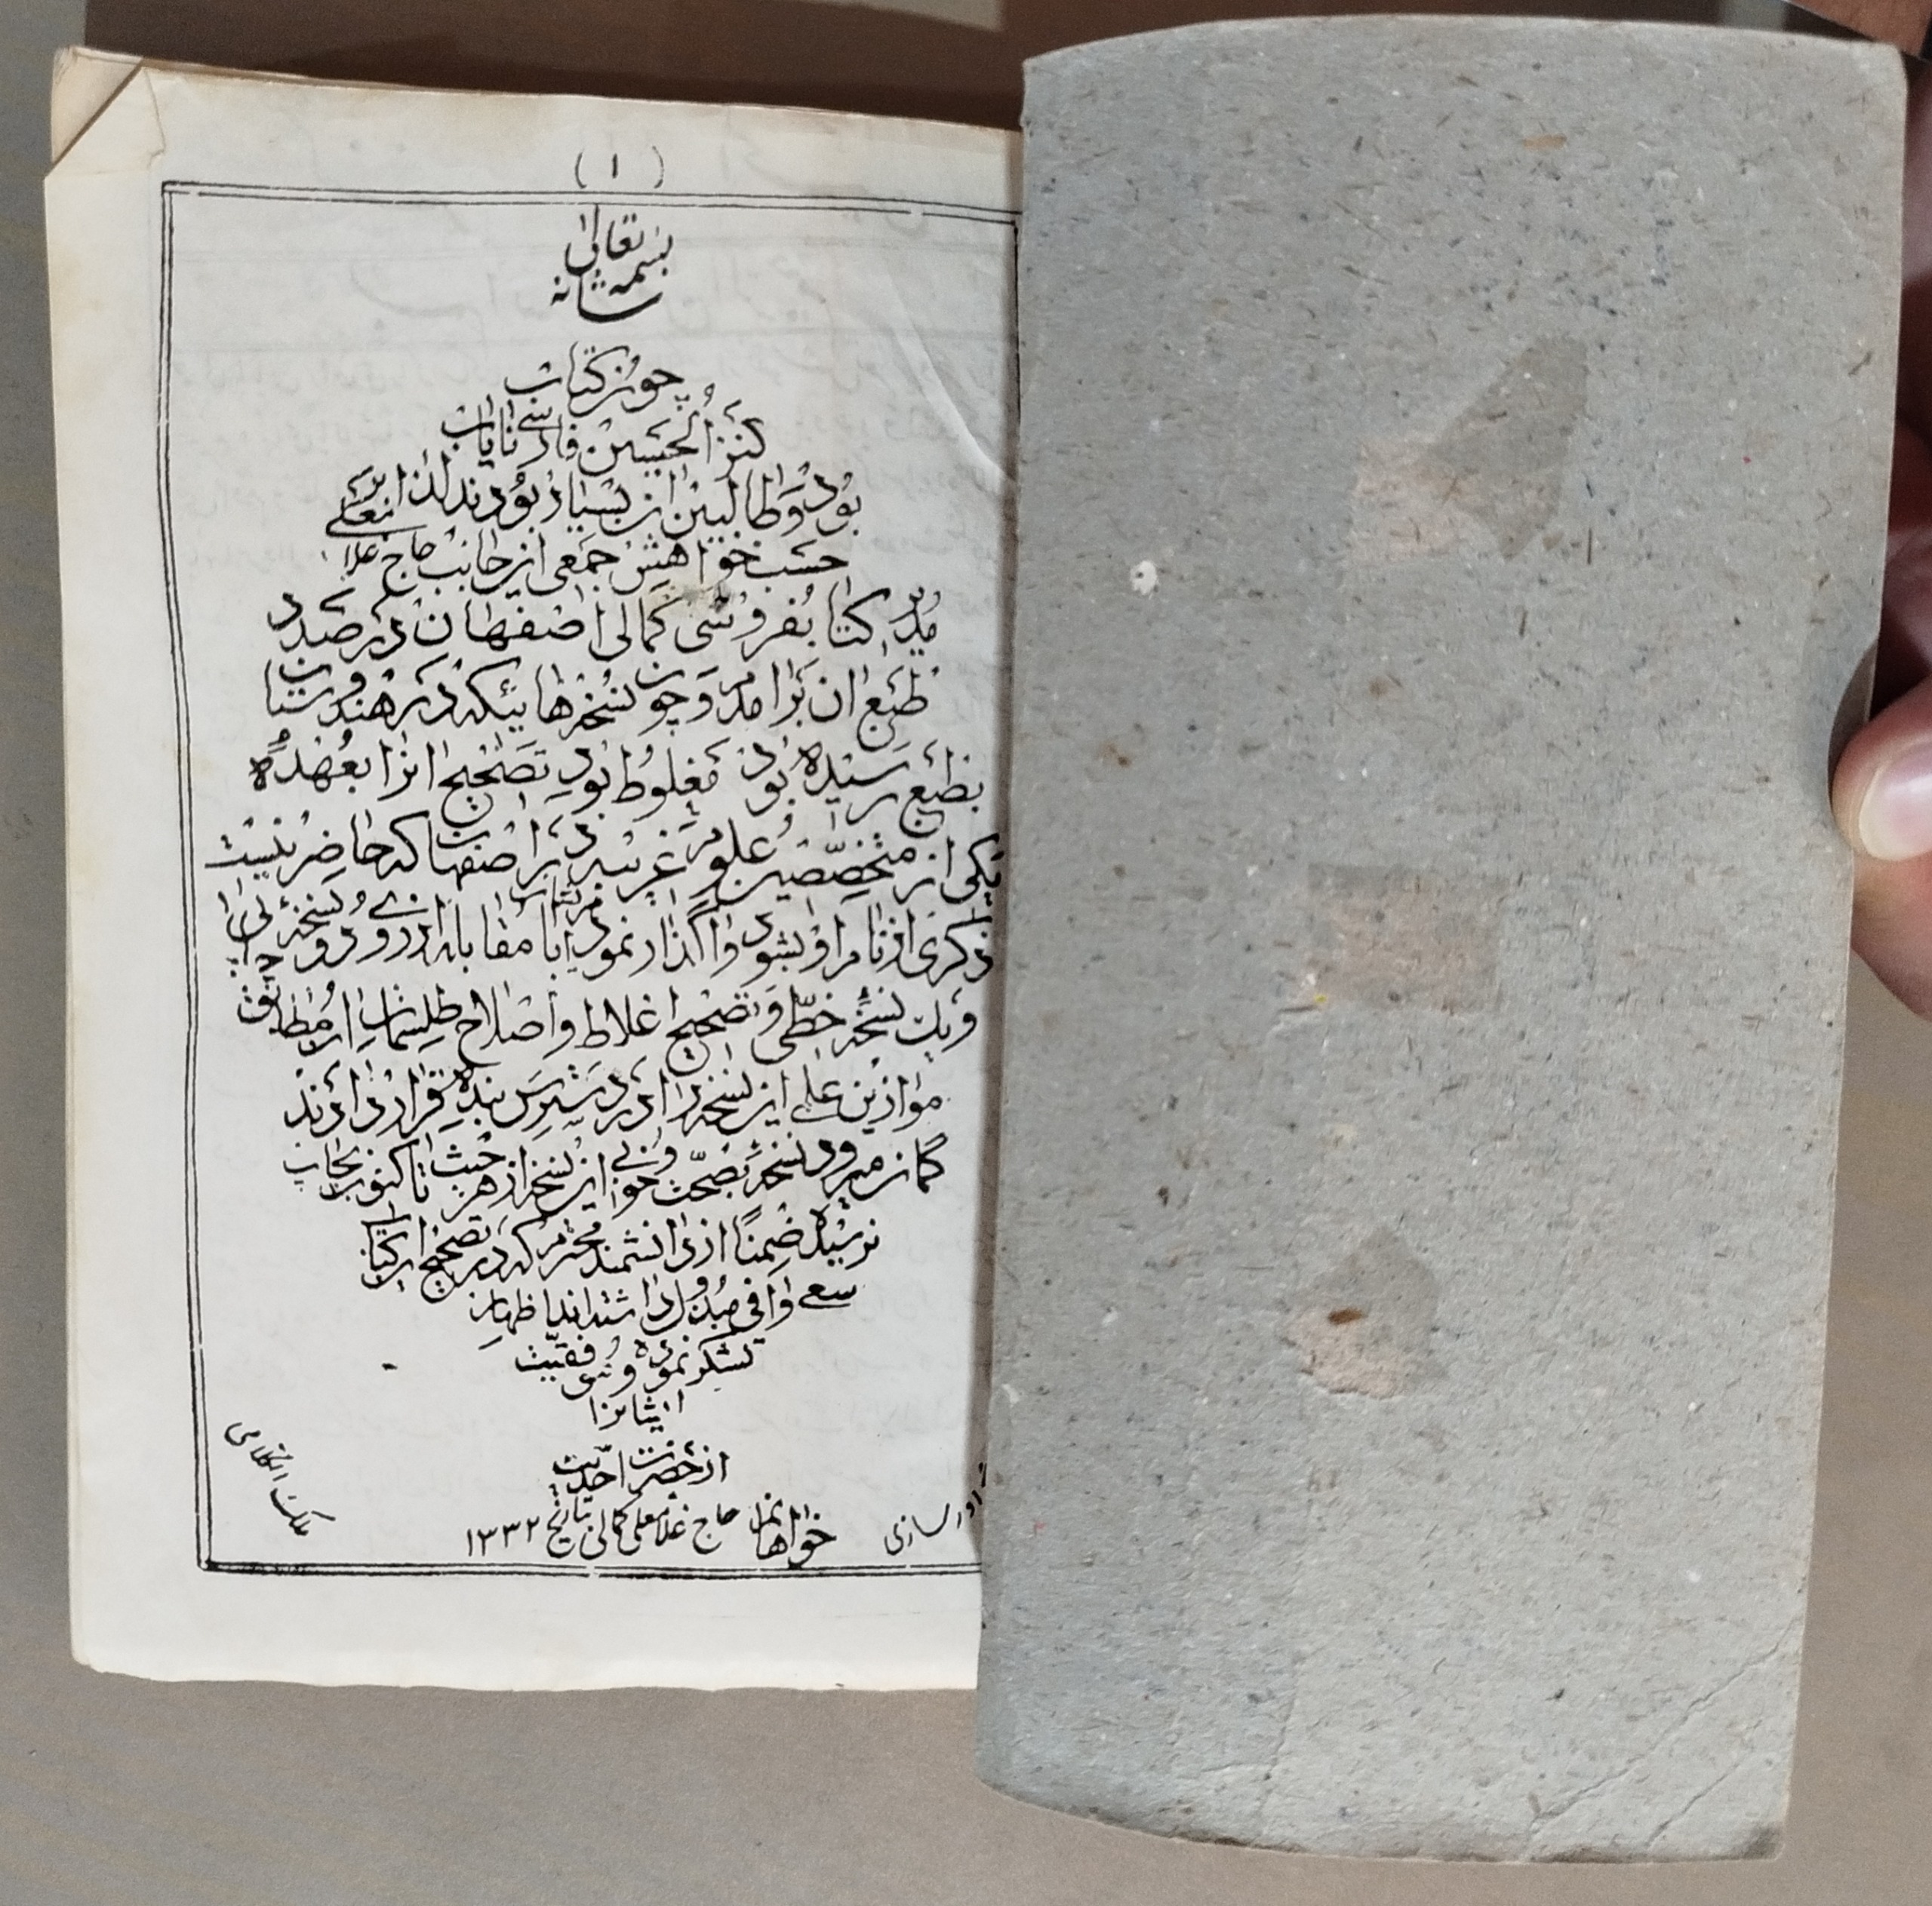 (۱)
بسمه تعالی شانه
چون کتاب
کنز الحسین فارسی نایاب
بود و طالبین آن بسیار بودند لذا برای
حسب خواهش جمعی از جانب حاج غلامعلی
مدیر کتابفروشی کمالی اصفهان در صدد
طبع آن برآمدم و چون نسخه هائیکه در هندوستان
بطبع رسیده بود مغلوط بود تصحیح آنرا بعهده
یکی از متخصصین علوم غریبه در اصفهان که حاضر نیست
ذکری از نام او بشود واگذار نمودم با مقابله از روی دو نسخه چاپی
و یک نسخه خطی و تصحیح اغلاط و اصلاح طلسمات آن مطابق
موازین علمی این نسخه را در دسترس بنده قرار دادند
گمان میرود نسخه بصحت و خوبی این نسخه از هر حیث تاکنون بچاپ
نرسیده ضمنا از دانشمند محترم که در تصحیح این کتاب
سعی وافی مبذول داشته اند اظهار
تشکر نموده و توفیقیت
ایشانرا
از حضرت احدیت
خواهانم حاج غلامعلی کمالی بتاریخ ۱۳۳۲